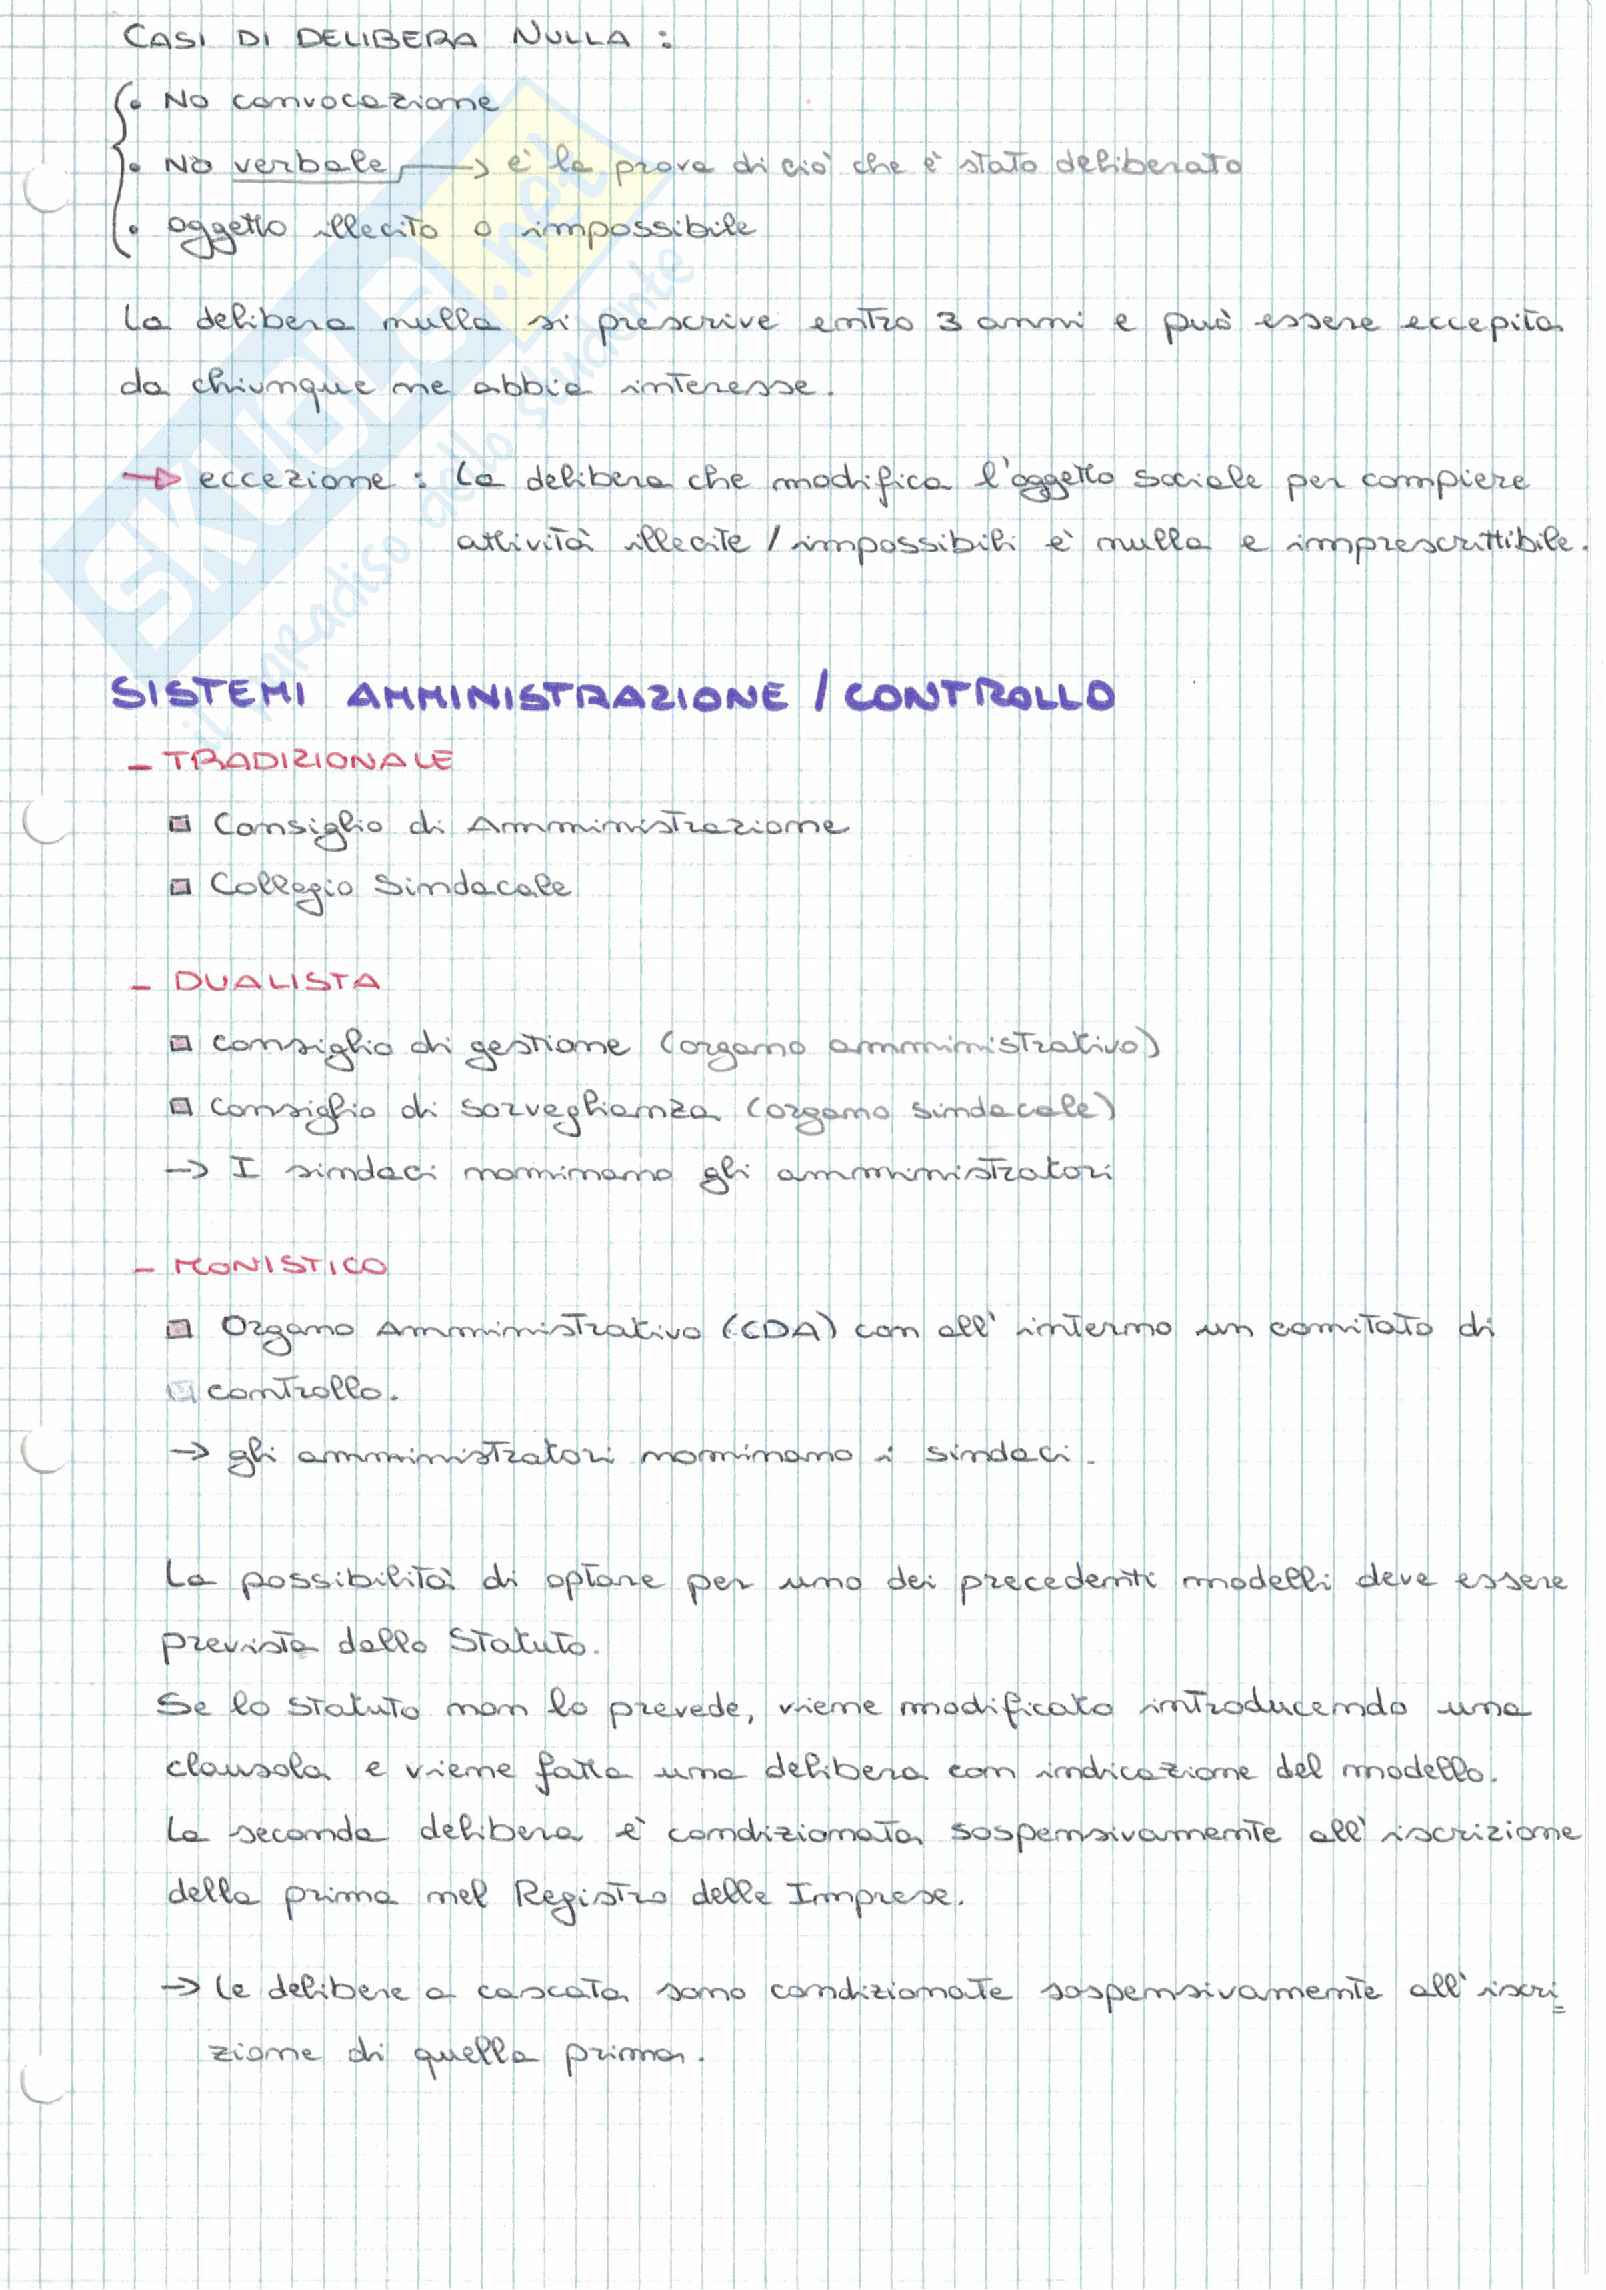 CASI DI DELIBERA NULLA :
• No convocazione
• No verbale → è la prova di ciò che è stato deliberato
• oggetto illecito o impossibile
La delibera nulla si prescrive entro 3 anni e può essere eccepita
da chiunque ne abbia interesse.
→ eccezione : La delibera che modifica l'oggetto sociale per compiere
attività illecite / impossibili è nulla e imprescrittibile.
SKUOLA.net
il paradiso dello studente
SISTEMI AMMINISTRAZIONE / CONTROLLO
- TRADIZIONALE
Consiglio di Amministrazione
Collegio Sindacale
- DUALISTA
consiglio di gestione (organo amministrativo)
consiglio di sorveglianza (organo sindacale)
→ I sindaci nominano gli amministratori
- MONISTICO
Organo Amministrativo (CDA) con all'interno un comitato di
controllo.
→ gli amministratori nominano i sindaci.
La possibilità di optare per uno dei precedenti modelli deve essere
prevista dallo Statuto.
Se lo statuto non lo prevede, viene modificato introducendo una
clausola e viene fatta una delibera con indicazione del modello.
La seconda delibera è condizionata sospensivamente all'iscrizione
della prima nel Registro delle Imprese.
→ Le delibere a cascata sono condizionate sospensivamente all'iscri=
zione di quella prima.